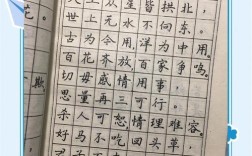 天上众星皆拱北，
世上无水不向东。
古为今用，洋为中用。
百花齐放，百家争鸣。
欺。
切毋感情用事，
思量再三
杀人可恕，情理难容。
好马不吃回头草